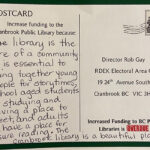 POSTCARD
Increase funding to the
Cranbrook Public Library because:
The library is the
core of a community
is essential to
bring together young
people for storytimes
school aged students
studying and
having a place to
meet, and adults
have a place for
leisure reading. The
Cranbrook library is a beautiful place
Director Rob Gay
RDEK Electoral Area
19 24th Avenue South
Cranbrook BC V1C 3H
Increased Funding to BC P
Libraries is OVERDUE